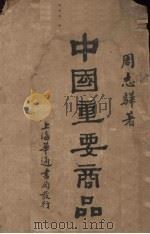 周志驊著
中國重要商品
上海華通書局發行
www.mtoou.info